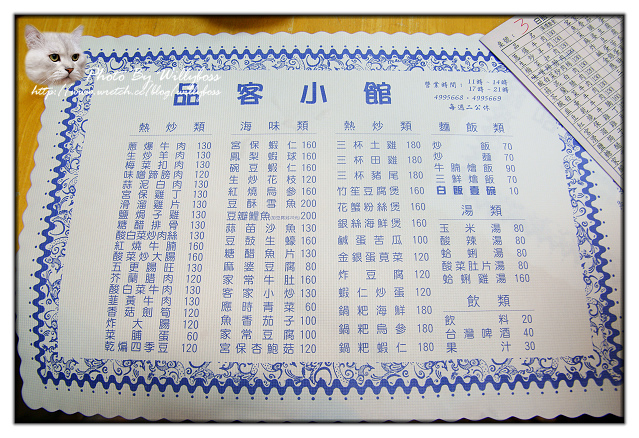 Photo By Willyboss
http://www.wretch.cc/blog/willyboss
品客小館
營業時間： 11時 - 14時
17時 - 21時
4995668 · 4995669
每週二公休
熱炒類
蔥爆牛肉 130
生炒羊肉 130
梅菜扣肉 130
味噌蹄膀 130
蒜泥白肉 130
宮保雞丁 130
滑溜雞片 130
鹽焗子雞 130
糖醋排骨 130
酸白菜炒肉絲 130
紅燒牛腩 160
酸菜炒大腸 160
五更腸旺 130
芥蘭臘肉 120
酸白菜牛肉 130
韮黃牛肉 130
香菇劍筍 120
炸大腸 120
菜脯蛋 60
乾煸四季豆 120
海味類
宮保蝦仁 160
鳳梨蝦球 160
碗豆蝦仁 160
生炒花枝 120
紅燒烏參 160
豆酥雪魚 200
豆瓣鯉魚 200
蒜苗沙魚 130
豆鼓生蠔 160
糖醋魚片 130
麻婆豆腐 80
家常牛肚 160
客家小炒 130
應時青菜 60
魚香茄子 100
家常豆腐 100
宮保杏鮑菇 120
三杯土雞 180
三杯田雞 180
三杯豬尾 180
竹笙豆腐煲 160
花蟹粉絲煲 160
銀絲海鮮煲 160
鹹蛋苦瓜 100
金銀蛋莧菜 120
炸豆腐 120
蝦仁炒蛋 120
鍋粑海鮮 180
鍋粑烏參 180
鍋粑蝦仁 180
麵飯類
炒飯 70
炒麵 70
牛腩燴飯 90
三鮮燴飯 90
白飯壹碗 10
湯類
玉米湯 80
酸辣湯 80
蛤蜊湯 80
酸菜肚片湯 80
蛤蜊雞湯 160
飲類
飲料 20
台灣啤酒 40
果汁 30